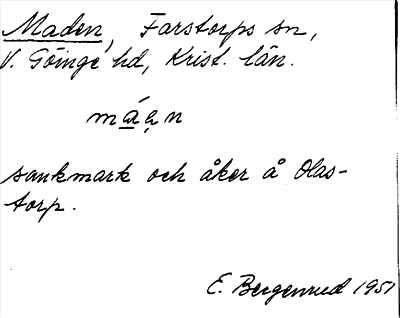 Maden, Farstorps sn,
V. Göinge hd, Krist. län.
má̲ạn
sankmark och åker å Olas-
torp.
E. Bergenrud 1951